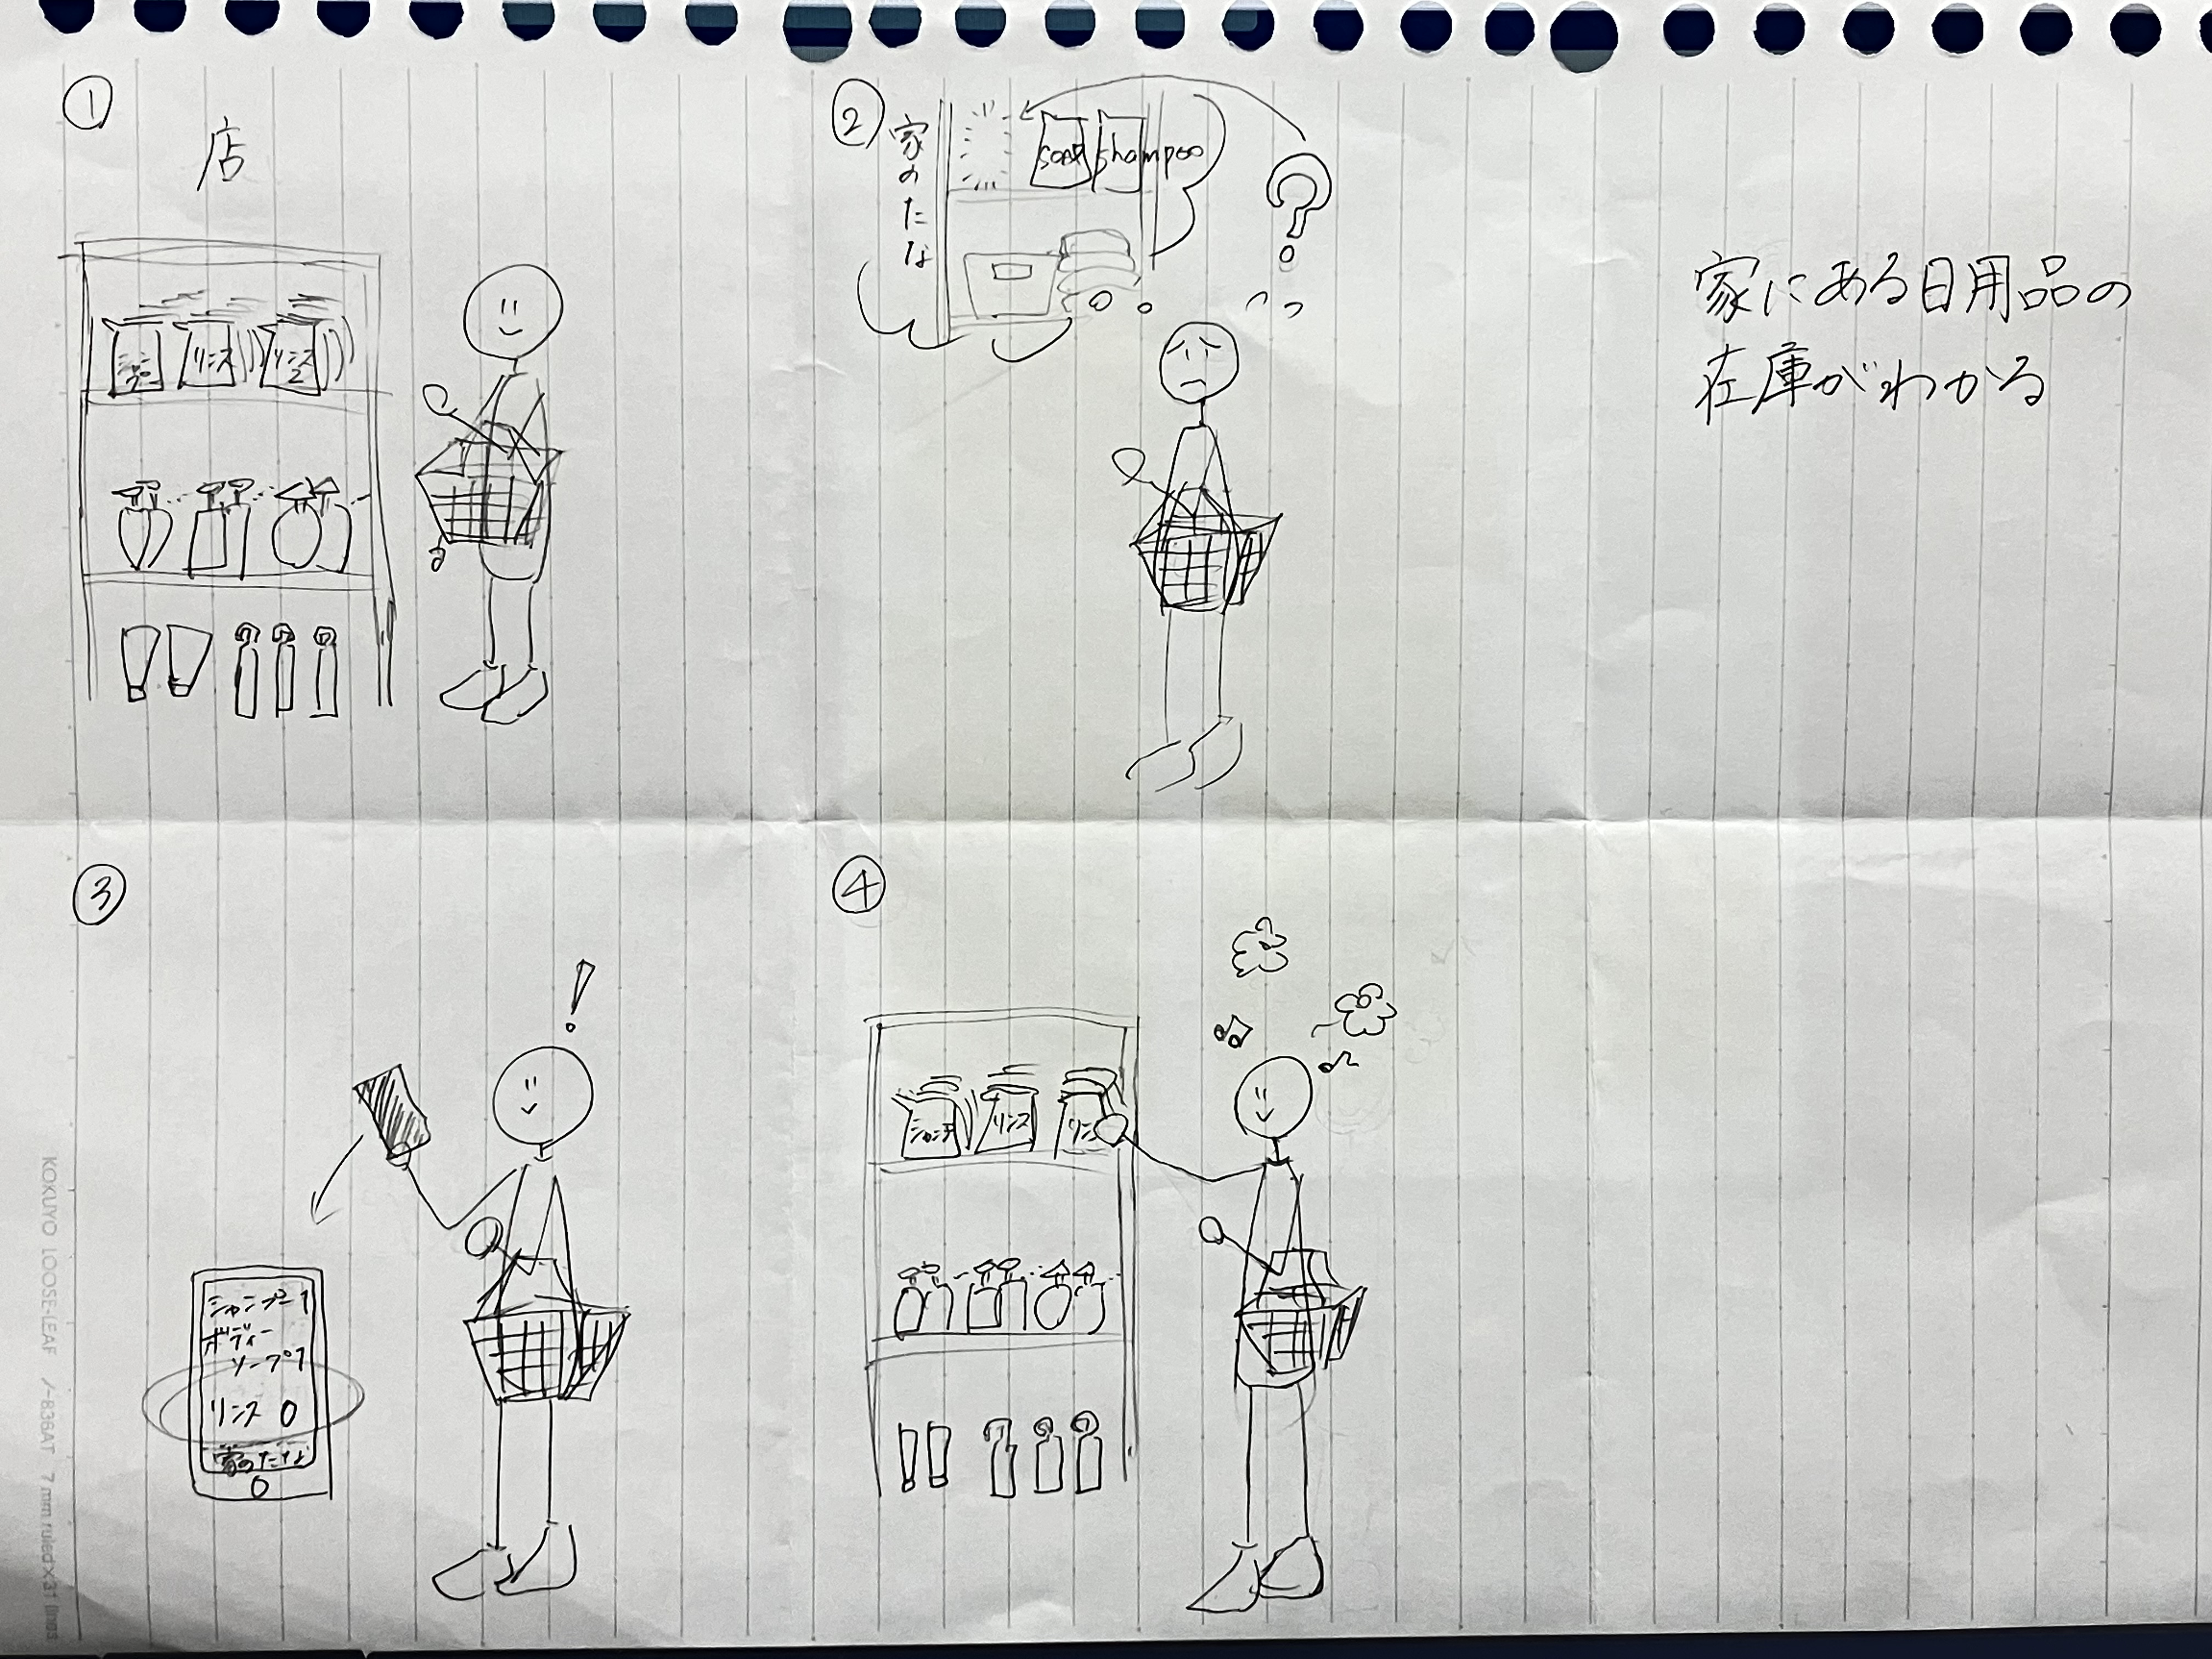 ①
店
シャンプー
リンス
リンス
②
家のたな
soap
shampoo
?
家にある日用品の
在庫がわかる
③
!
シャンプー 1
ボディー
ソープ 1
リンス 0
家のたな
④
リンス
リンス
KOKUYO LOOSE-LEAF ノ-836AT 7 mm ruled×31 lines